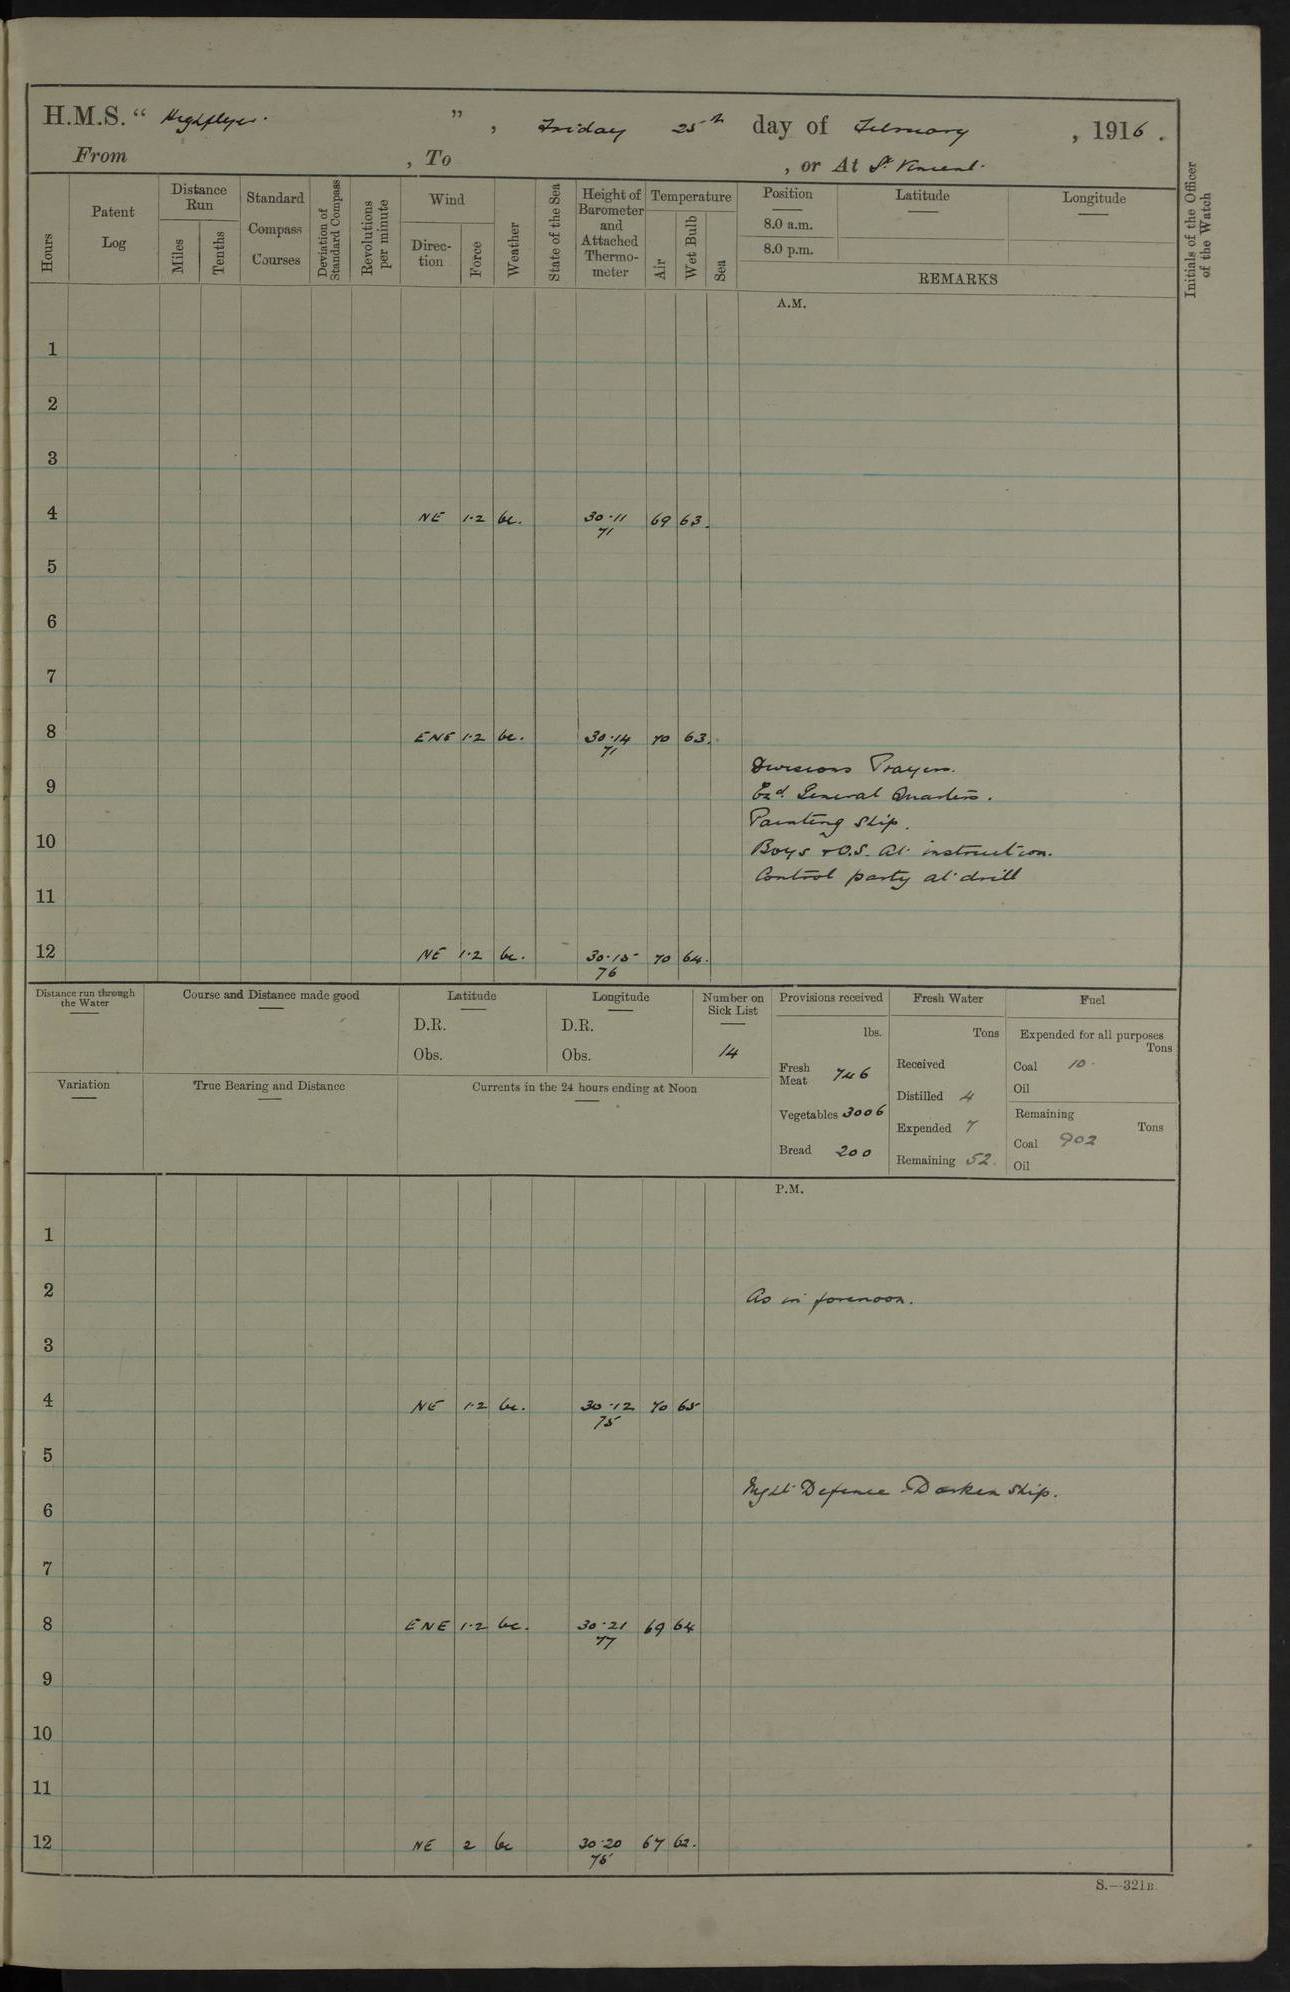 H.M.S. " Highflyer. ", Friday 25th day of February, 1916.
From , To , or At St Vincent.
Hours
Patent Log
Distance Run
Miles
Tenths
Standard Compass Courses
Deviation of Standard Compass
Revolutions per minute
Wind
Direction
Force
Weather
State of the Sea
Height of Barometer and Attached Thermometer
Temperature
Air
Wet Bulb
Sea
Position
8.0 a.m.
8.0 p.m.
Latitude
Longitude
REMARKS
Initials of the Officer of the Watch
A.M.
1
2
3
4 NE 1·2 bc. 30·11 69 63.
71
5
6
7
8 ENE 1·2 bc. 30·14 70 63.
71
Divisions Prayers.
9
Exd. General Quarters.
Painting Ship.
10
Boys & O.S. at instruction.
Control party at drill
11
12 NE 1·2 bc. 30·15 70 64.
76
Distance run through the Water
Course and Distance made good
Latitude
D.R.
Obs.
Longitude
D.R.
Obs.
Number on Sick List
14
Provisions received
lbs.
Fresh Meat 746
Vegetables 3006
Bread 200
Fresh Water
Tons
Received
Distilled 4
Expended 7
Remaining 52.
Fuel
Expended for all purposes
Tons
Coal 10.
Oil
Remaining
Tons
Coal 902
Oil
Variation
True Bearing and Distance
Currents in the 24 hours ending at Noon
P.M.
1
2 As in forenoon.
3
4 NE 1·2 bc. 30·12 70 65
75
5
Night Defence. Darken Ship.
6
7
8 ENE 1·2 bc. 30·21 69 64
77
9
10
11
12 NE 2 bc 30·20 67 62.
75
S.—321B.